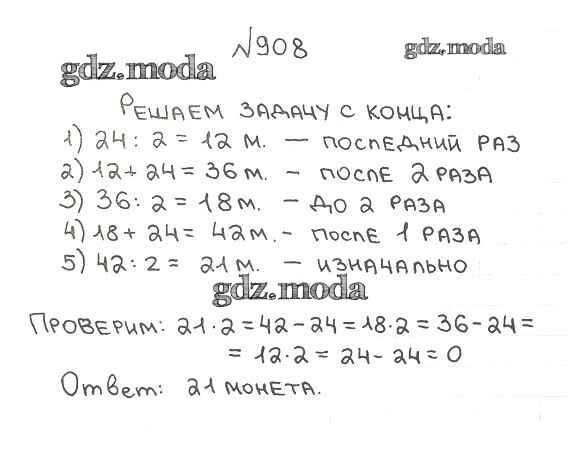 №908
gdz.moda
gdz.moda
Решаем задачу с конца:
1) 24 : 2 = 12 м. — последний раз
2) 12 + 24 = 36 м. - после 2 раза
3) 36 : 2 = 18 м. - до 2 раза
4) 18 + 24 = 42 м. - после 1 раза
5) 42 : 2 = 21 м. — изначально
gdz.moda
Проверим: 21 · 2 = 42 - 24 = 18 · 2 = 36 - 24 =
= 12 · 2 = 24 - 24 = 0
Ответ: 21 монета.